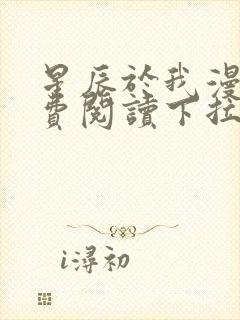 星辰於我漫
費閱讀下拉
i潯初